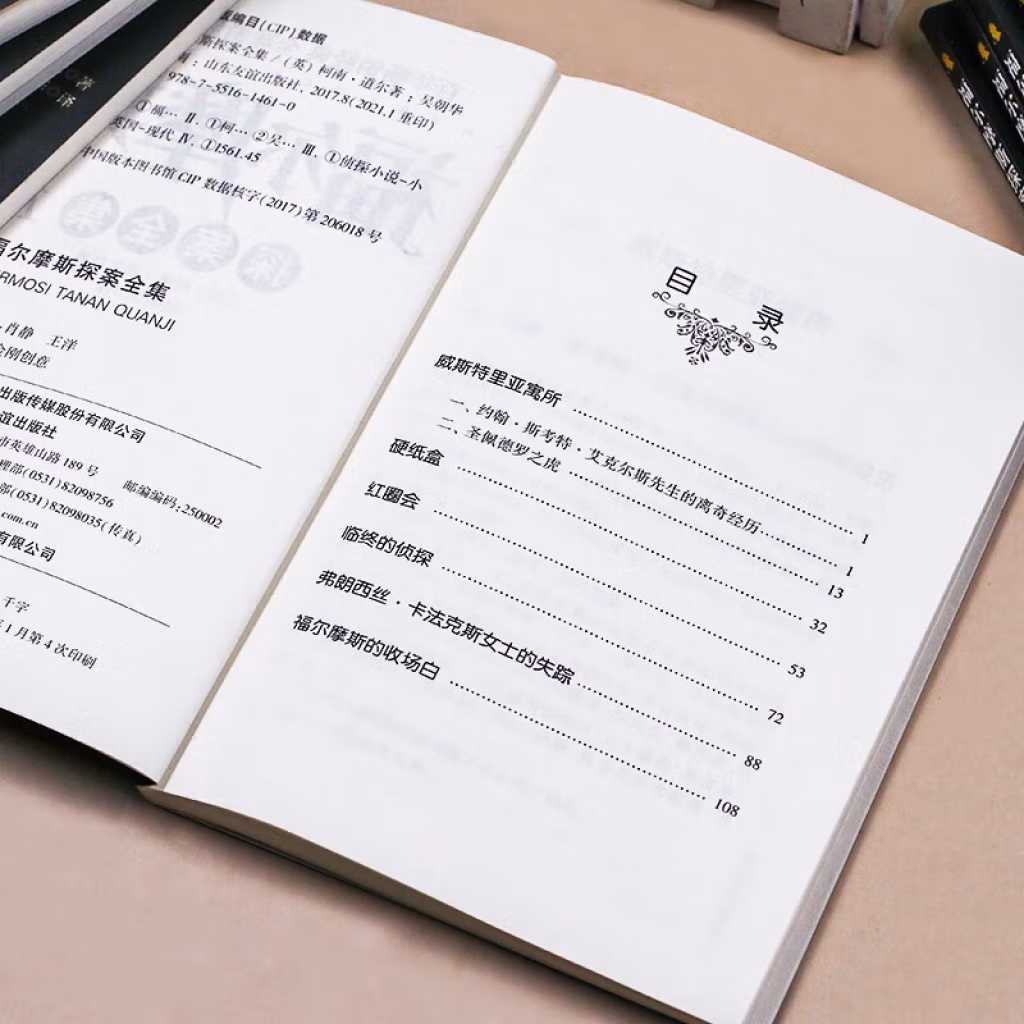 版编目(CIP)数据
斯探案全集/(英)柯南·道尔著;吴朝华
:山东友谊出版社,2017.8(2021.1重印)
978-7-5516-1461-0
①福… Ⅱ.①柯… ②吴… Ⅲ.①侦探小说-小
英国-现代 Ⅳ.①I561.45
中国版本图书馆CIP数据核字(2017)第206018号
福尔摩斯探案全集
ERMOSI TANAN QUANJI
肖静 王洋
金刚创意
出版传媒股份有限公司
谊出版社
市英雄山路189号 邮编编码:250002
理部(0531)82098756
部(0531)82098035(传真)
.com.cn
有限公司
千字
年1月第4次印刷
目录
威斯特里亚寓所 …… 1
一、约翰·斯考特·艾克尔斯先生的离奇经历 …… 1
二、圣佩德罗之虎 …… 13
硬纸盒 …… 32
红圈会 …… 53
临终的侦探 …… 72
弗朗西丝·卡法克斯女士的失踪 …… 88
福尔摩斯的收场白 …… 108
著
译